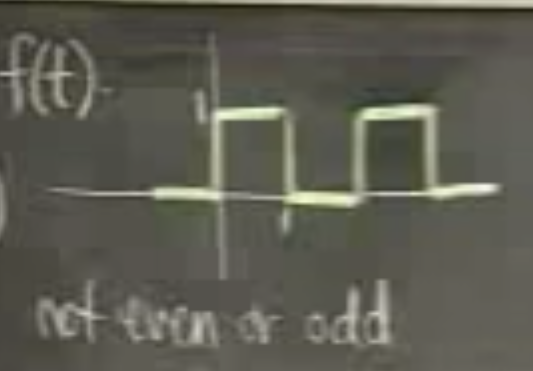 f(t)
1
1
not even or odd